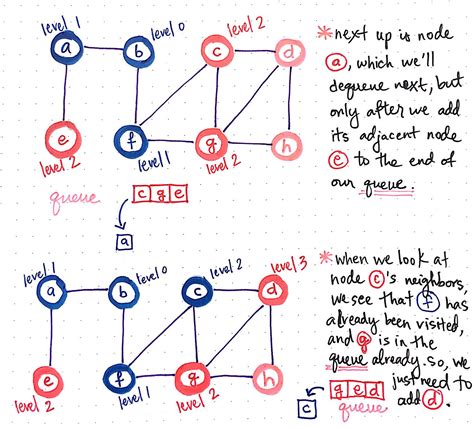 level 1
level 0
level 2
a
b
c
d
e
f
g
h
level 2
level 1
level 2
queue
c g e
a
*next up is node
a, which we'll
dequeue next, but
only after we add
its adjacent node
e to the end of
our queue.
level 1
level 0
level 2
level 3
a
b
c
d
e
f
g
h
level 2
level 1
level 2
*when we look at
node c's neighbors,
we see that f has
already been visited,
and g is in the
queue already. so, we
just need to
add d.
g e d
queue
c